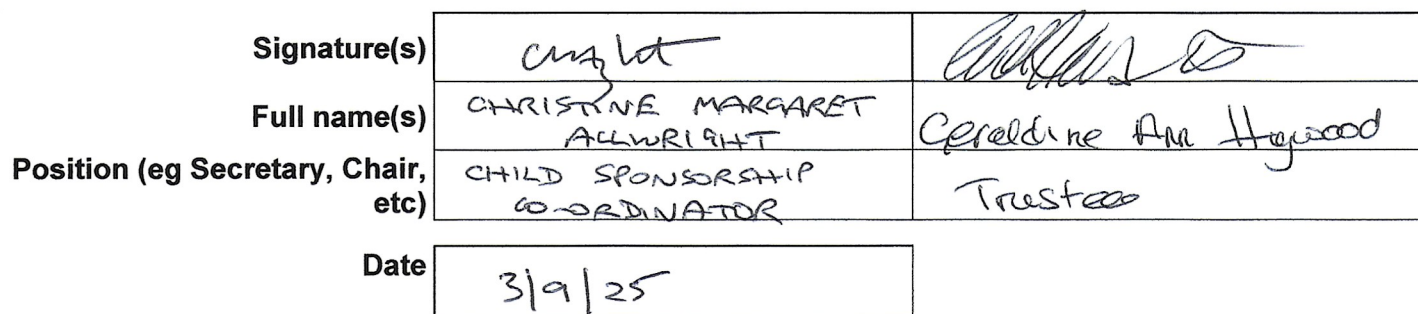 Signature(s)
Full name(s) CHRISTINE MARGARET ALLWRIGHT Geraldine Ann Haywood
Position (eg Secretary, Chair, etc) CHILD SPONSORSHIP CO-ORDINATOR Trustee
Date 3/9/25